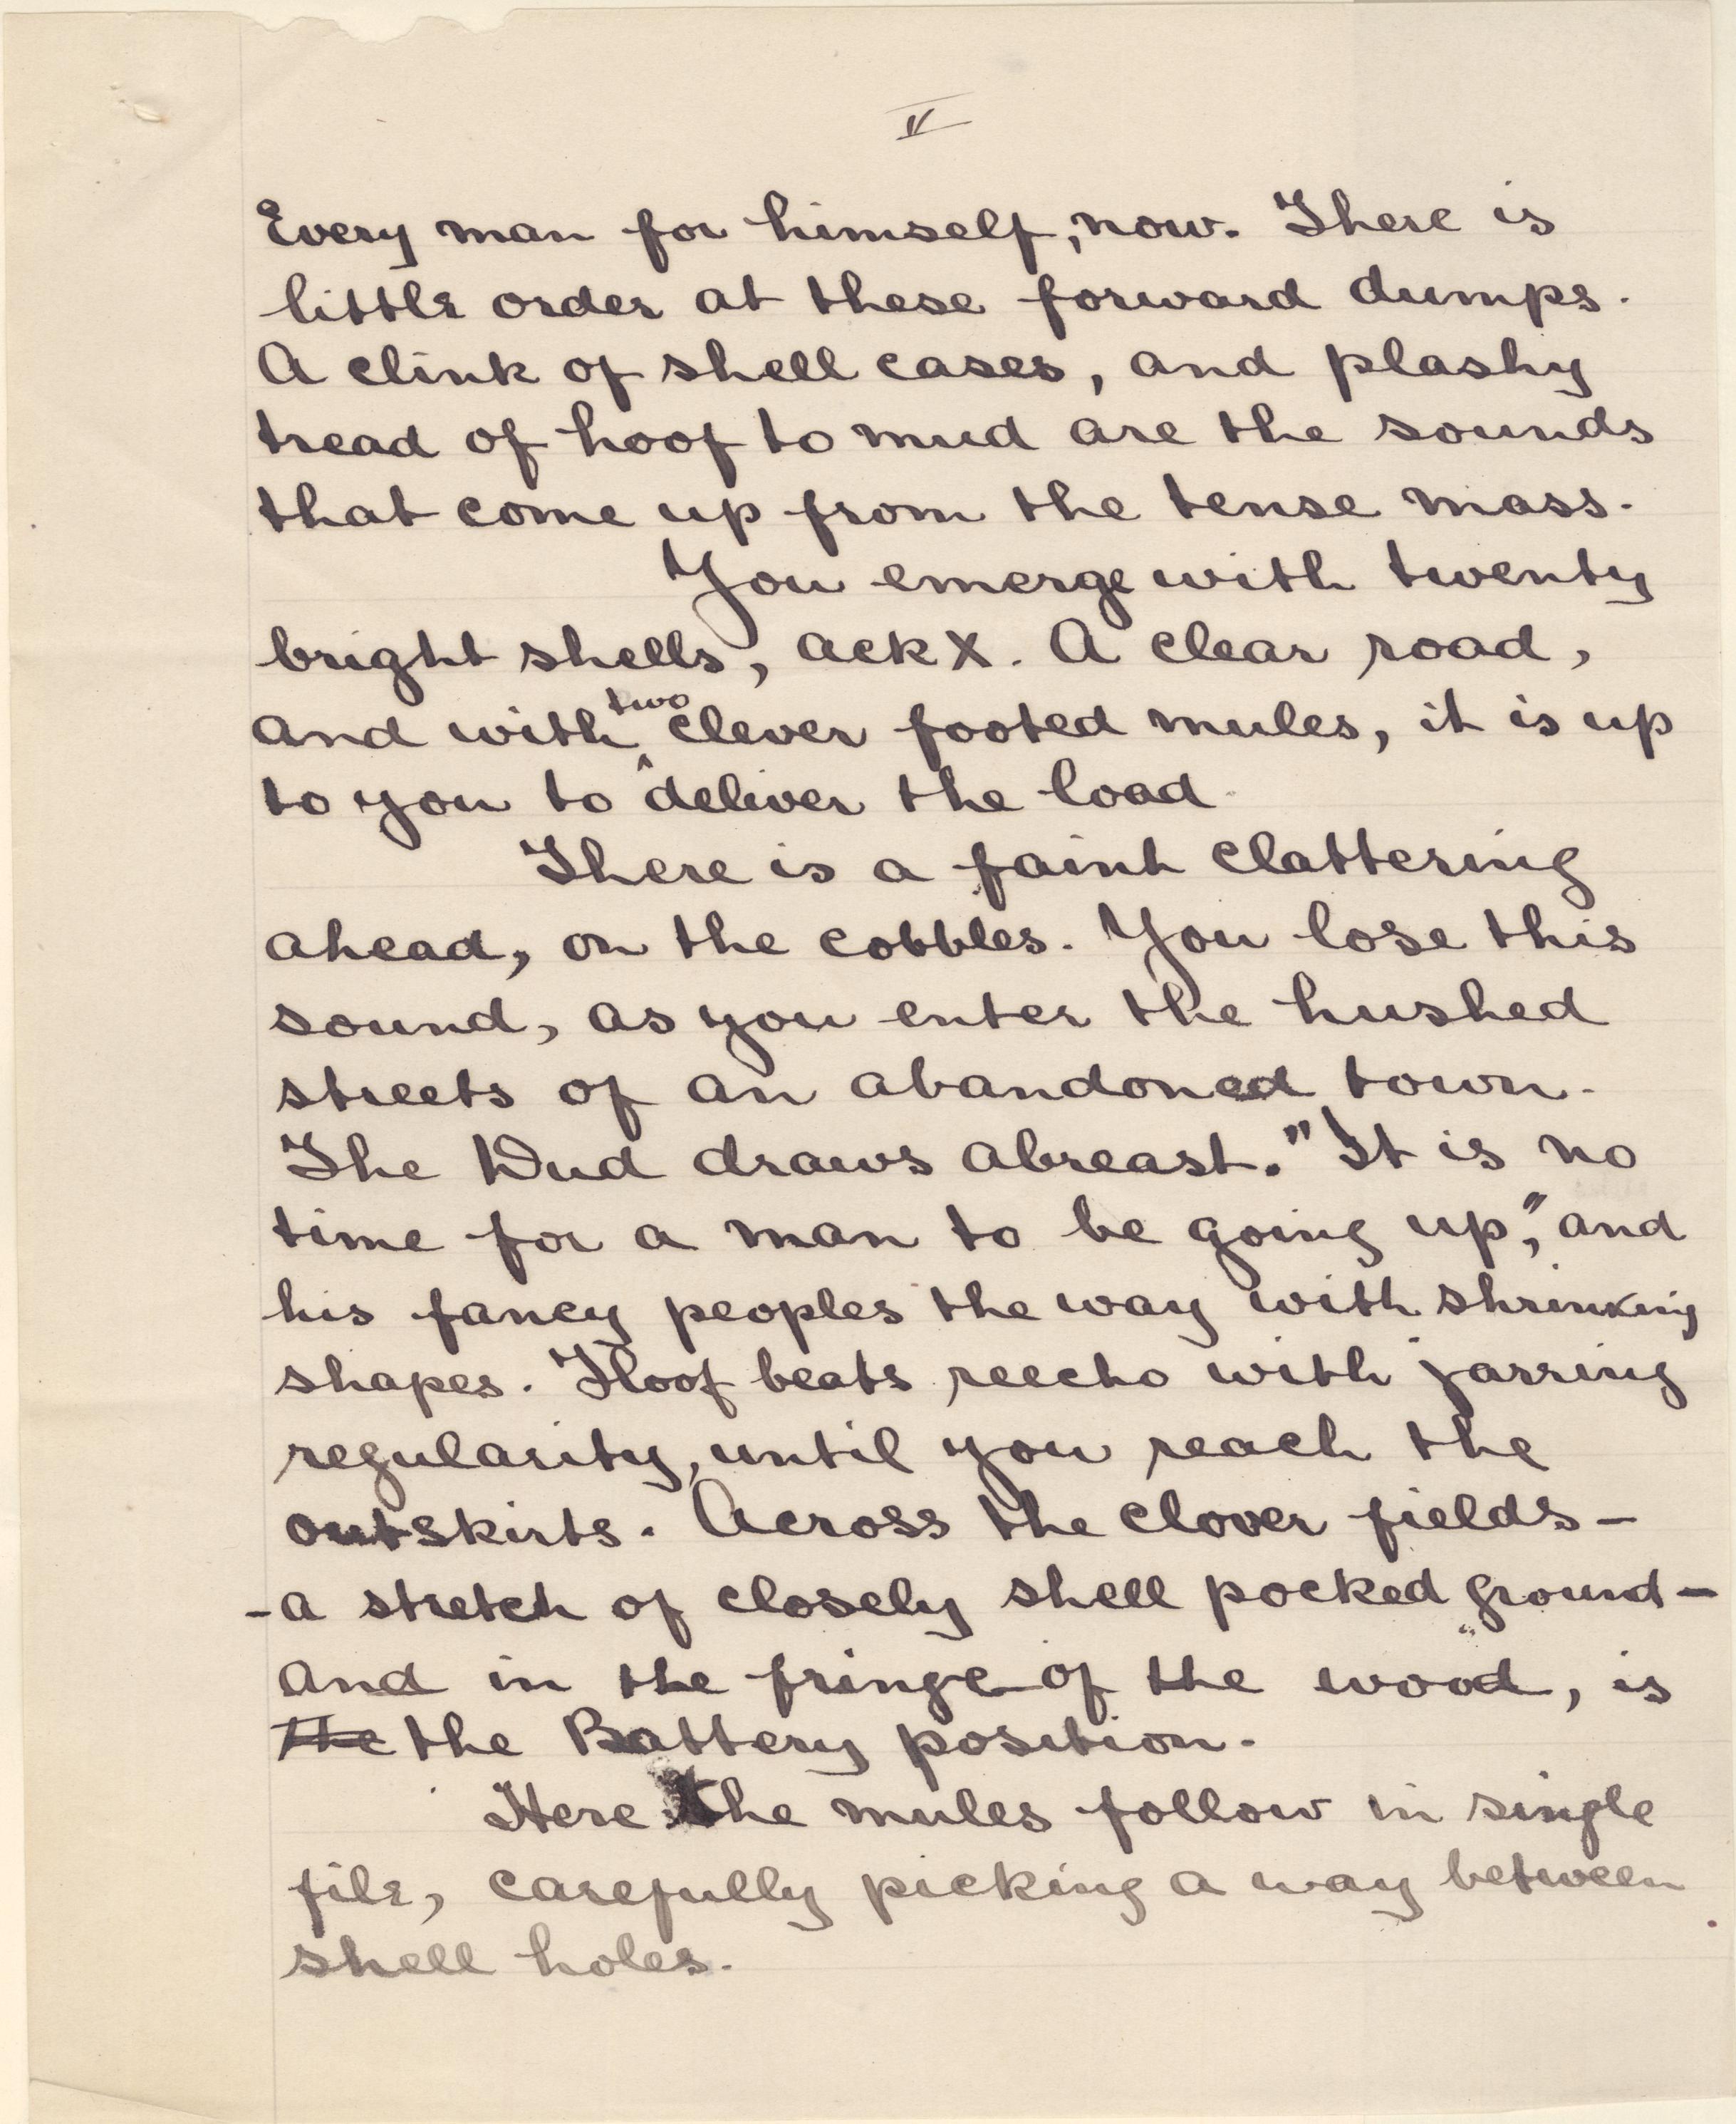 V
Every man for himself, now. There is
little order at these forward dumps.
A clink of shell cases, and plashy
tread of hoof to mud are the sounds
that come up from the tense mass.
You emerge with twenty
bright shells, ack X. A clear road,
and with two clever footed mules, it is up
to you to deliver the load.
There is a faint clattering
ahead, on the cobbles. You lose this
sound, as you enter the hushed
streets of an abandoned town.
The Wud draws abreast. "It is no
time for a man to be going up," and
his fancy peoples the way with shrinking
shapes. Hoof beats reecho with jarring
regularity, until you reach the
outskirts. Across the clover fields -
- a stretch of closely shell pocked ground -
and in the fringe of the wood, is
the the Battery position.
Here the mules follow in single
file, carefully picking a way between
shell holes.